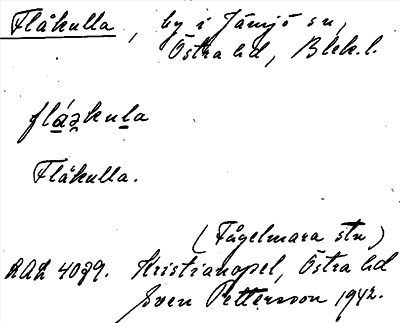 Flåkulla, by i Jämjö sn,
Östra hd, Blek.l.
flåkula
Flåkulla.
(Fågelmara stn)
RAÄ 4029. Kristianopel, Östra hd
Sven Pettersson 1942.